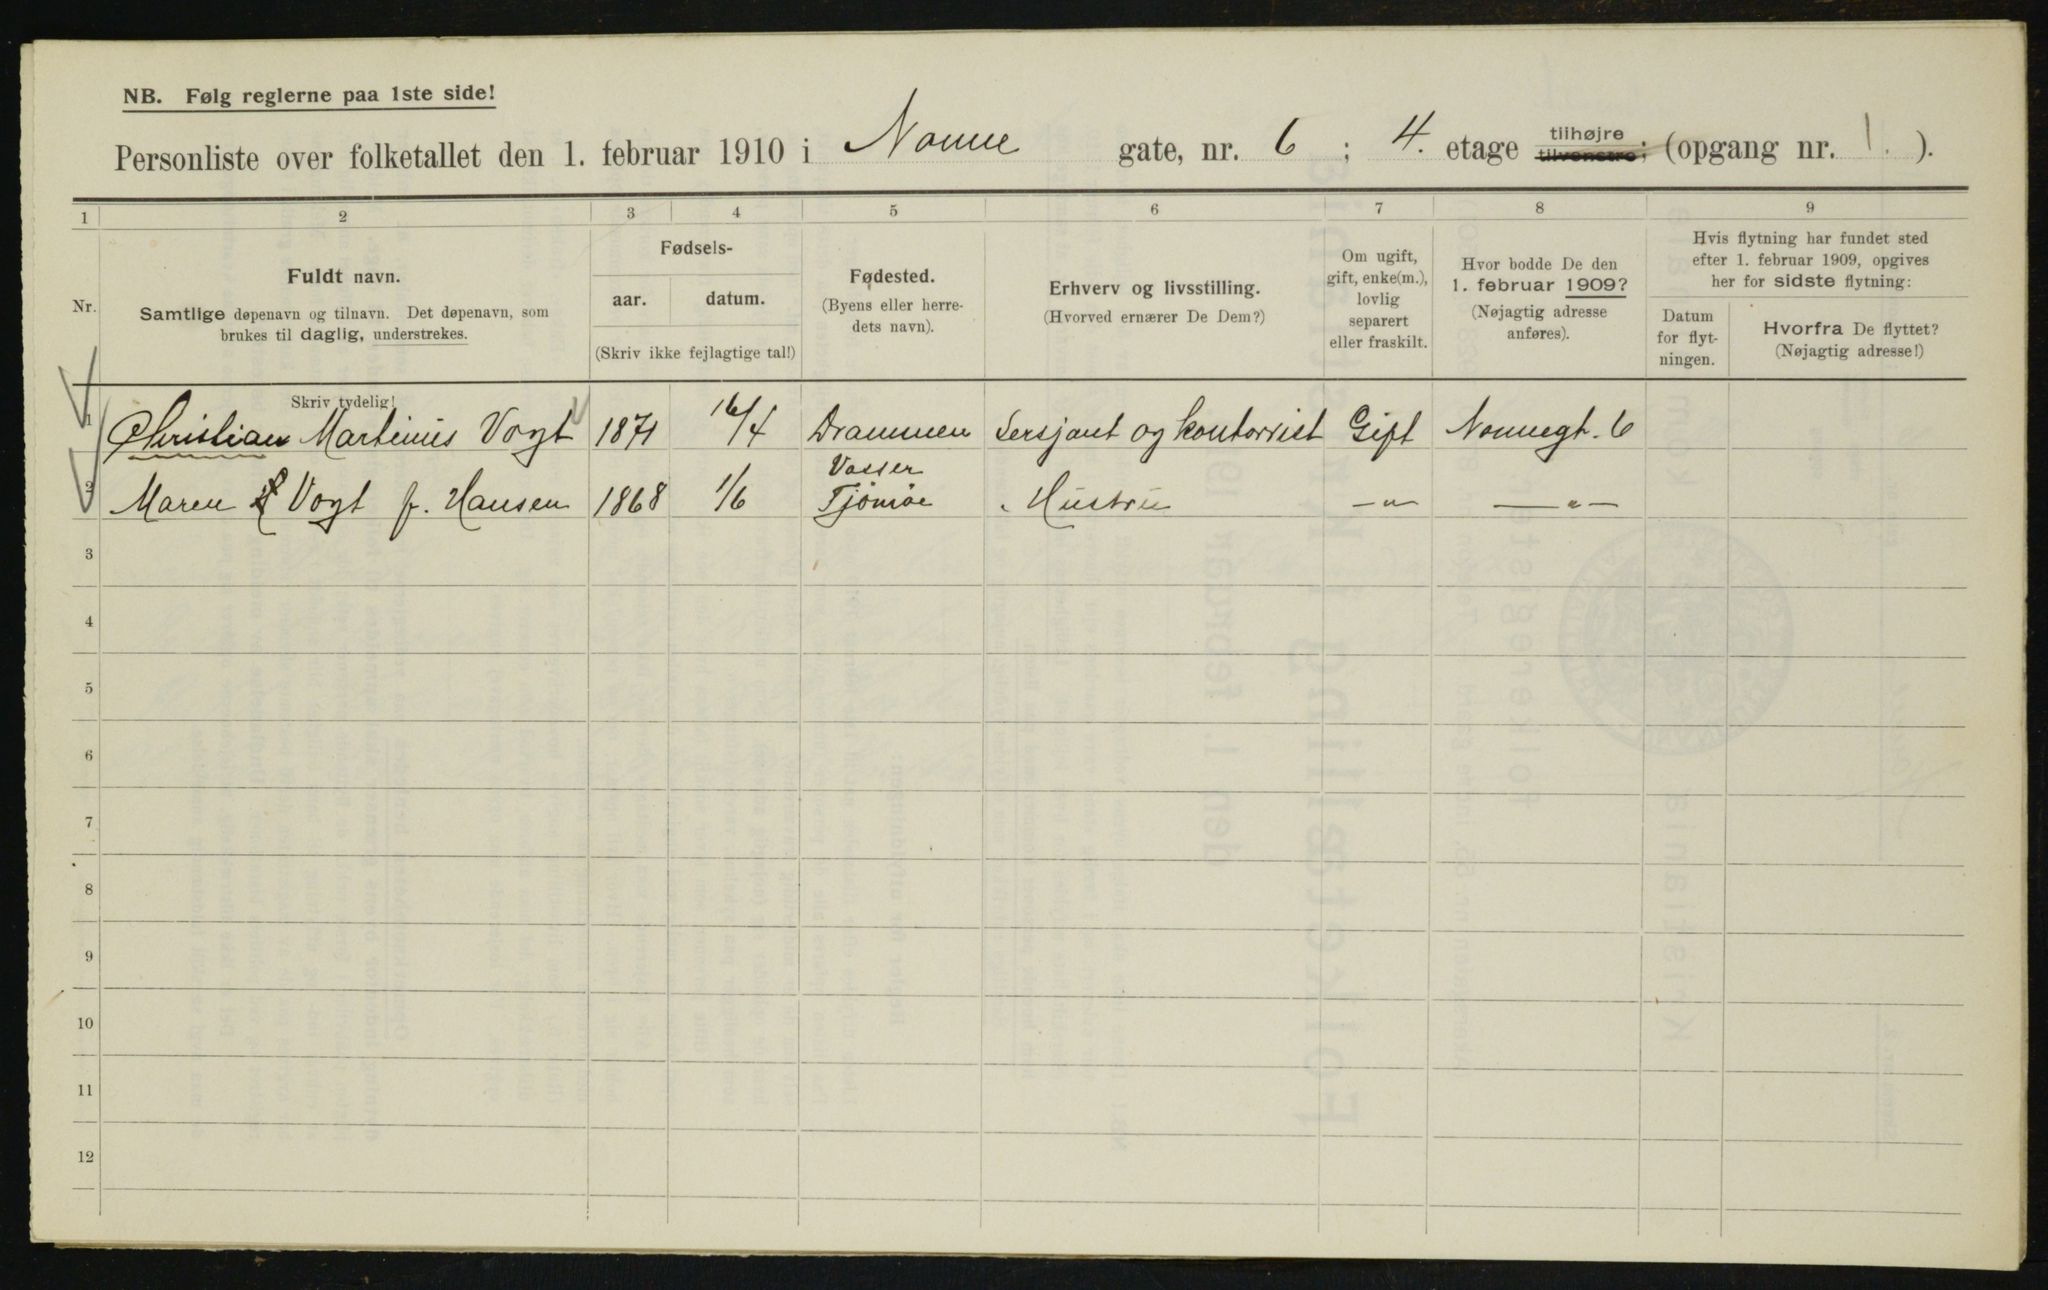 NB. Følg reglerne paa 1ste side!
Personliste over folketallet den 1. februar 1910 i Nonne gate, nr. 6 ; 4. etage tilhøjre tilvenstre; (opgang nr. 1. ).
1 2 3 4 5 6 7 8 9
Nr.
Fuldt navn.
Samtlige døpenavn og tilnavn. Det døpenavn, som
brukes til daglig, understrekes.
Fødsels-
aar. datum.
(Skriv ikke fejlagtige tal!)
Fødested.
(Byens eller herre-
dets navn).
Erhverv og livsstilling.
(Hvorved ernærer De Dem?)
Om ugift,
gift, enke(m.),
lovlig
separert
eller fraskilt.
Hvor bodde De den
1. februar 1909?
(Nøjagtig adresse
anføres).
Hvis flytning har fundet sted
efter 1. februar 1909, opgives
her for sidste flytning:
Datum
for flyt-
ningen.
Hvorfra De flyttet?
(Nøjagtig adresse!)
Skriv tydelig!
1 Christian Martinius Vogt 1871 16/4 Drammen Sersjant og kontorrist Gift Nonnegt. 6
Vasser
2 Maren Vogt f. Hansen 1868 1/6 Tjømøe Hustru —"— —"—
3
4
5
6
7
8
9
10
11
12